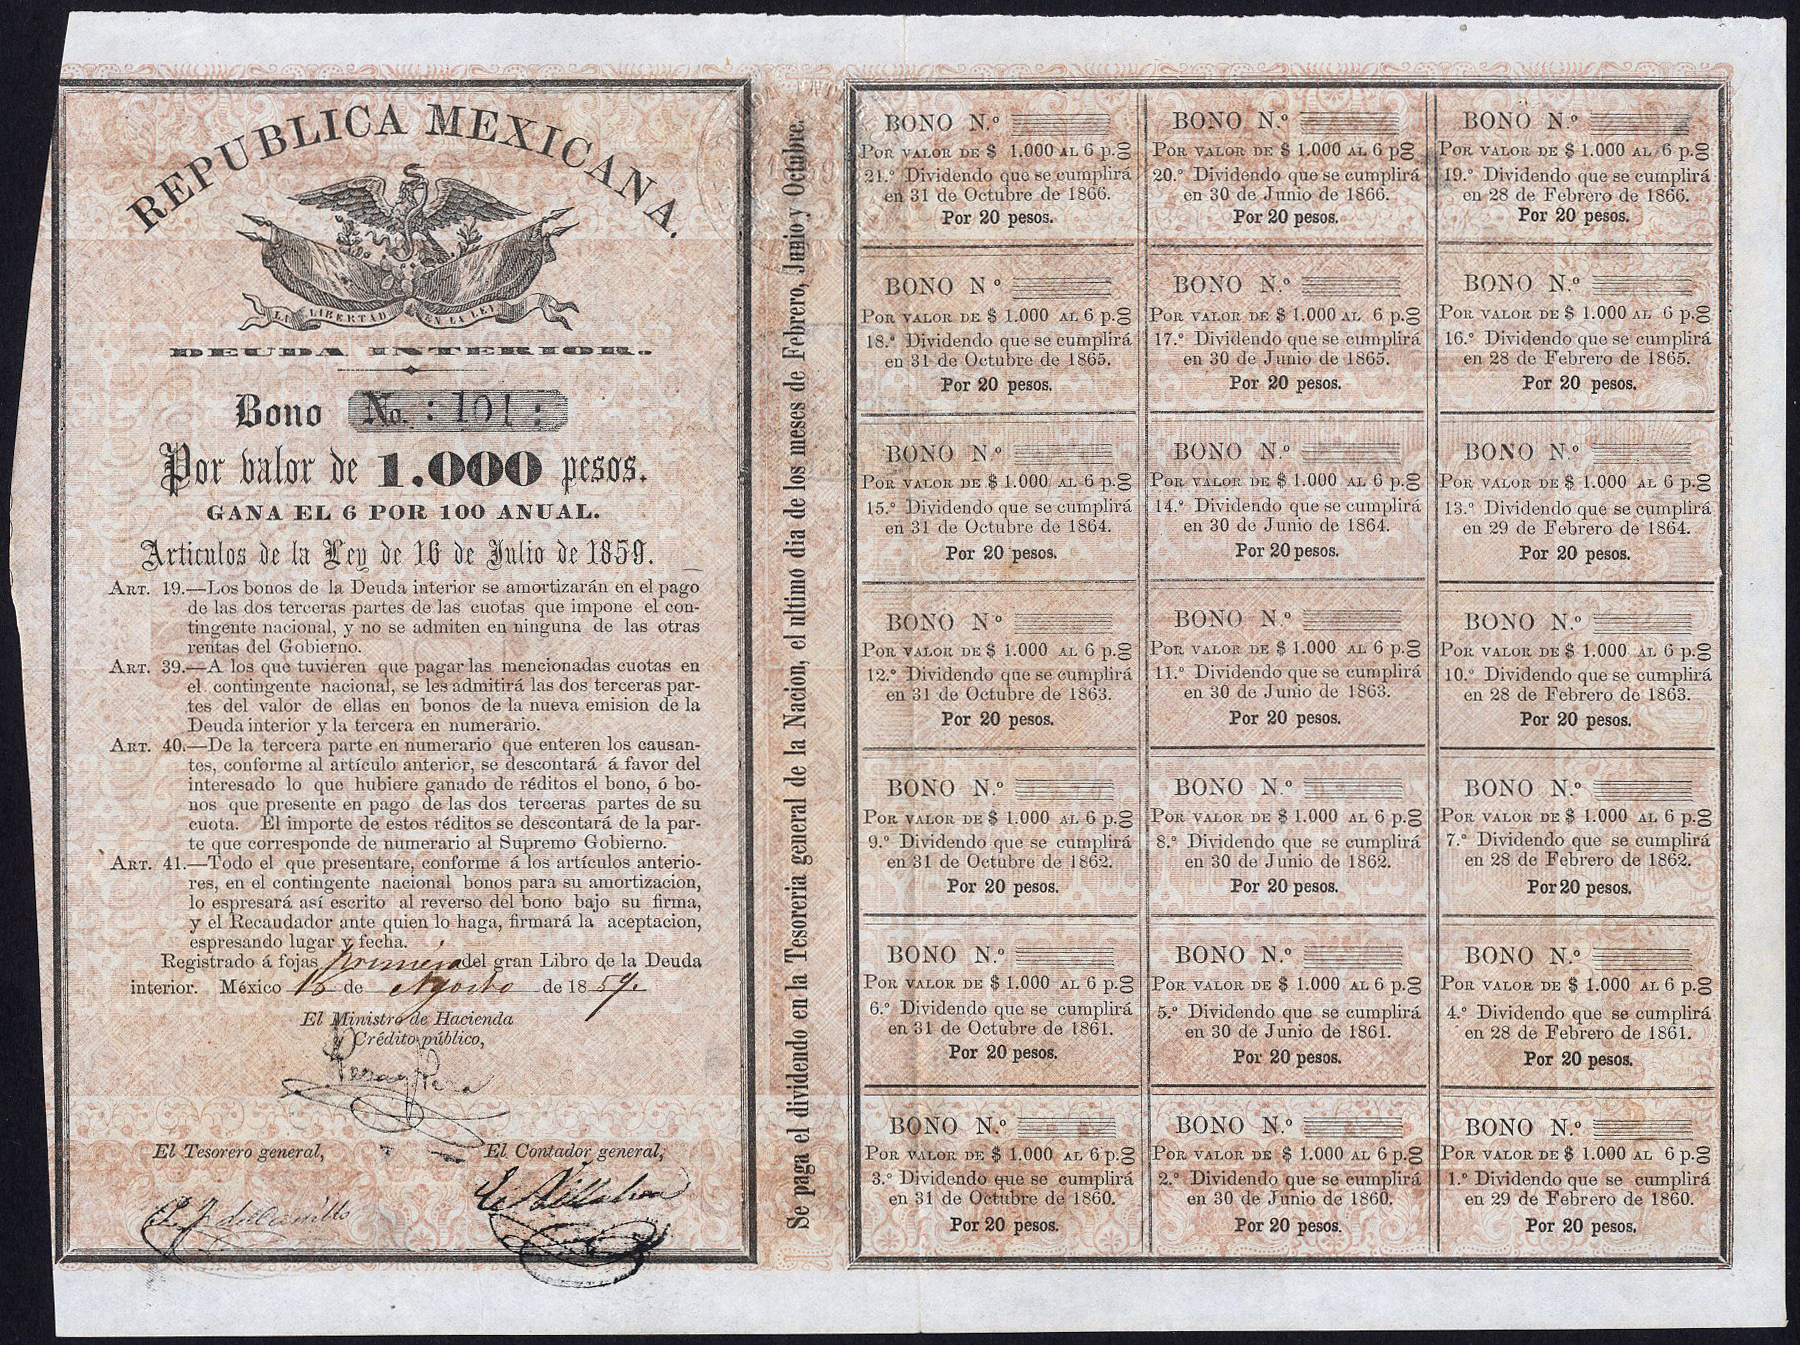 REPUBLICA MEXICANA.
LA LIBERTAD EN LA LEY
DEUDA INTERIOR.
Bono No. : 101 :
Por valor de 1.000 pesos.
GANA EL 6 POR 100 ANUAL.
Articulos de la Ley de 16 de Julio de 1859.
ART. 19.—Los bonos de la Deuda interior se amortizarán en el pago
de las dos terceras partes de las cuotas que impone el con-
tingente nacional, y no se admiten en ninguna de las otras
rentas del Gobierno.
ART. 39.—A los que tuvieren que pagar las mencionadas cuotas en
el contingente nacional, se les admitirá las dos terceras par-
tes del valor de ellas en bonos de la nueva emision de la
Deuda interior y la tercera en numerario.
ART. 40.—De la tercera parte en numerario que enteren los causan-
tes, conforme al artículo anterior, se descontará á favor del
interesado lo que hubiere ganado de réditos el bono, ó bo-
nos que presente en pago de las dos terceras partes de su
cuota. El importe de estos réditos se descontará de la par-
te que corresponde de numerario al Supremo Gobierno.
ART. 41.—Todo el que presentare, conforme á los artículos anterio-
res, en el contingente nacional bonos para su amortizacion,
lo espresará así escrito al reverso del bono bajo su firma,
y el Recaudador ante quien lo haga, firmará la aceptacion,
espresando lugar y fecha.
Registrado á fojas primera del gran Libro de la Deuda
interior. México 16 de Agosto de 1859.
El Ministro de Hacienda
y Crédito público,
El Tesorero general,
El Contador general,
Se paga el dividendo en la Tesoreria general de la Nacion, el ultimo dia de los meses de Febrero, Junio y Octubre.
BONO N.º
POR VALOR DE $ 1.000 AL 6 p.00
21.º Dividendo que se cumplirá
en 31 de Octubre de 1866.
Por 20 pesos.
BONO N.º
POR VALOR DE $ 1.000 AL 6 p00
20.º Dividendo que se cumplirá
en 30 de Junio de 1866.
Por 20 pesos.
BONO N.º
POR VALOR DE $ 1.000 AL 6 p.00
19.º Dividendo que se cumplirá
en 28 de Febrero de 1866.
Por 20 pesos.
BONO N º
POR VALOR DE $ 1.000 AL 6 p.00
18.º Dividendo que se cumplirá
en 31 de Octubre de 1865.
Por 20 pesos.
BONO N.º
POR VALOR DE $ 1.000 AL 6 p.00
17.º Dividendo que se cumplirá
en 30 de Junio de 1865.
Por 20 pesos.
BONO N.º
POR VALOR DE $ 1.000 AL 6 p.00
16.º Dividendo que se cumplirá
en 28 de Febrero de 1865.
Por 20 pesos.
BONO N.º
POR VALOR DE $ 1.000 AL 6 p.00
15.º Dividendo que se cumplirá
en 31 de Octubre de 1864.
Por 20 pesos.
BONO N.º
POR VALOR DE $ 1.000 AL 6 p.00
14.º Dividendo que se cumplirá
en 30 de Junio de 1864.
Por 20 pesos.
BONO N.º
POR VALOR DE $ 1.000 AL 6 p.00
13.º Dividendo que se cumplirá
en 29 de Febrero de 1864.
Por 20 pesos.
BONO N º
POR VALOR DE $ 1.000 AL 6 p.00
12.º Dividendo que se cumplirá
en 31 de Octubre de 1863.
Por 20 pesos.
BONO N.º
POR VALOR DE $ 1.000 AL 6 p.00
11.º Dividendo que se cumplirá
en 30 de Junio de 1863.
Por 20 pesos.
BONO N.º
POR VALOR DE $ 1.000 AL 6 p.00
10.º Dividendo que se cumplirá
en 28 de Febrero de 1863.
Por 20 pesos.
BONO N.º
POR VALOR DE $ 1.000 AL 6 p.00
9.º Dividendo que se cumplirá
en 31 de Octubre de 1862.
Por 20 pesos.
BONO N.º
POR VALOR DE $ 1.000 AL 6 p.00
8.º Dividendo que se cumplirá
en 30 de Junio de 1862.
Por 20 pesos.
BONO N.º
POR VALOR DE $ 1.000 AL 6 p.00
7.º Dividendo que se cumplirá
en 28 de Febrero de 1862.
Por 20 pesos.
BONO N.º
POR VALOR DE $ 1.000 AL 6 p.00
6.º Dividendo que se cumplirá
en 31 de Octubre de 1861.
Por 20 pesos.
BONO N.º
POR VALOR DE $ 1.000 AL 6 p.00
5.º Dividendo que se cumplirá
en 30 de Junio de 1861.
Por 20 pesos.
BONO N.º
POR VALOR DE $ 1.000 AL 6 p.00
4.º Dividendo que se cumplirá
en 28 de Febrero de 1861.
Por 20 pesos.
BONO N.º
POR VALOR DE $ 1.000 AL 6 p.00
3.º Dividendo que se cumplirá
en 31 de Octubre de 1860.
Por 20 pesos.
BONO N.º
POR VALOR DE $ 1.000 AL 6 p.00
2.º Dividendo que se cumplirá
en 30 de Junio de 1860.
Por 20 pesos.
BONO N.º
POR VALOR DE $ 1.000 AL 6 p.00
1.º Dividendo que se cumplirá
en 29 de Febrero de 1860.
Por 20 pesos.